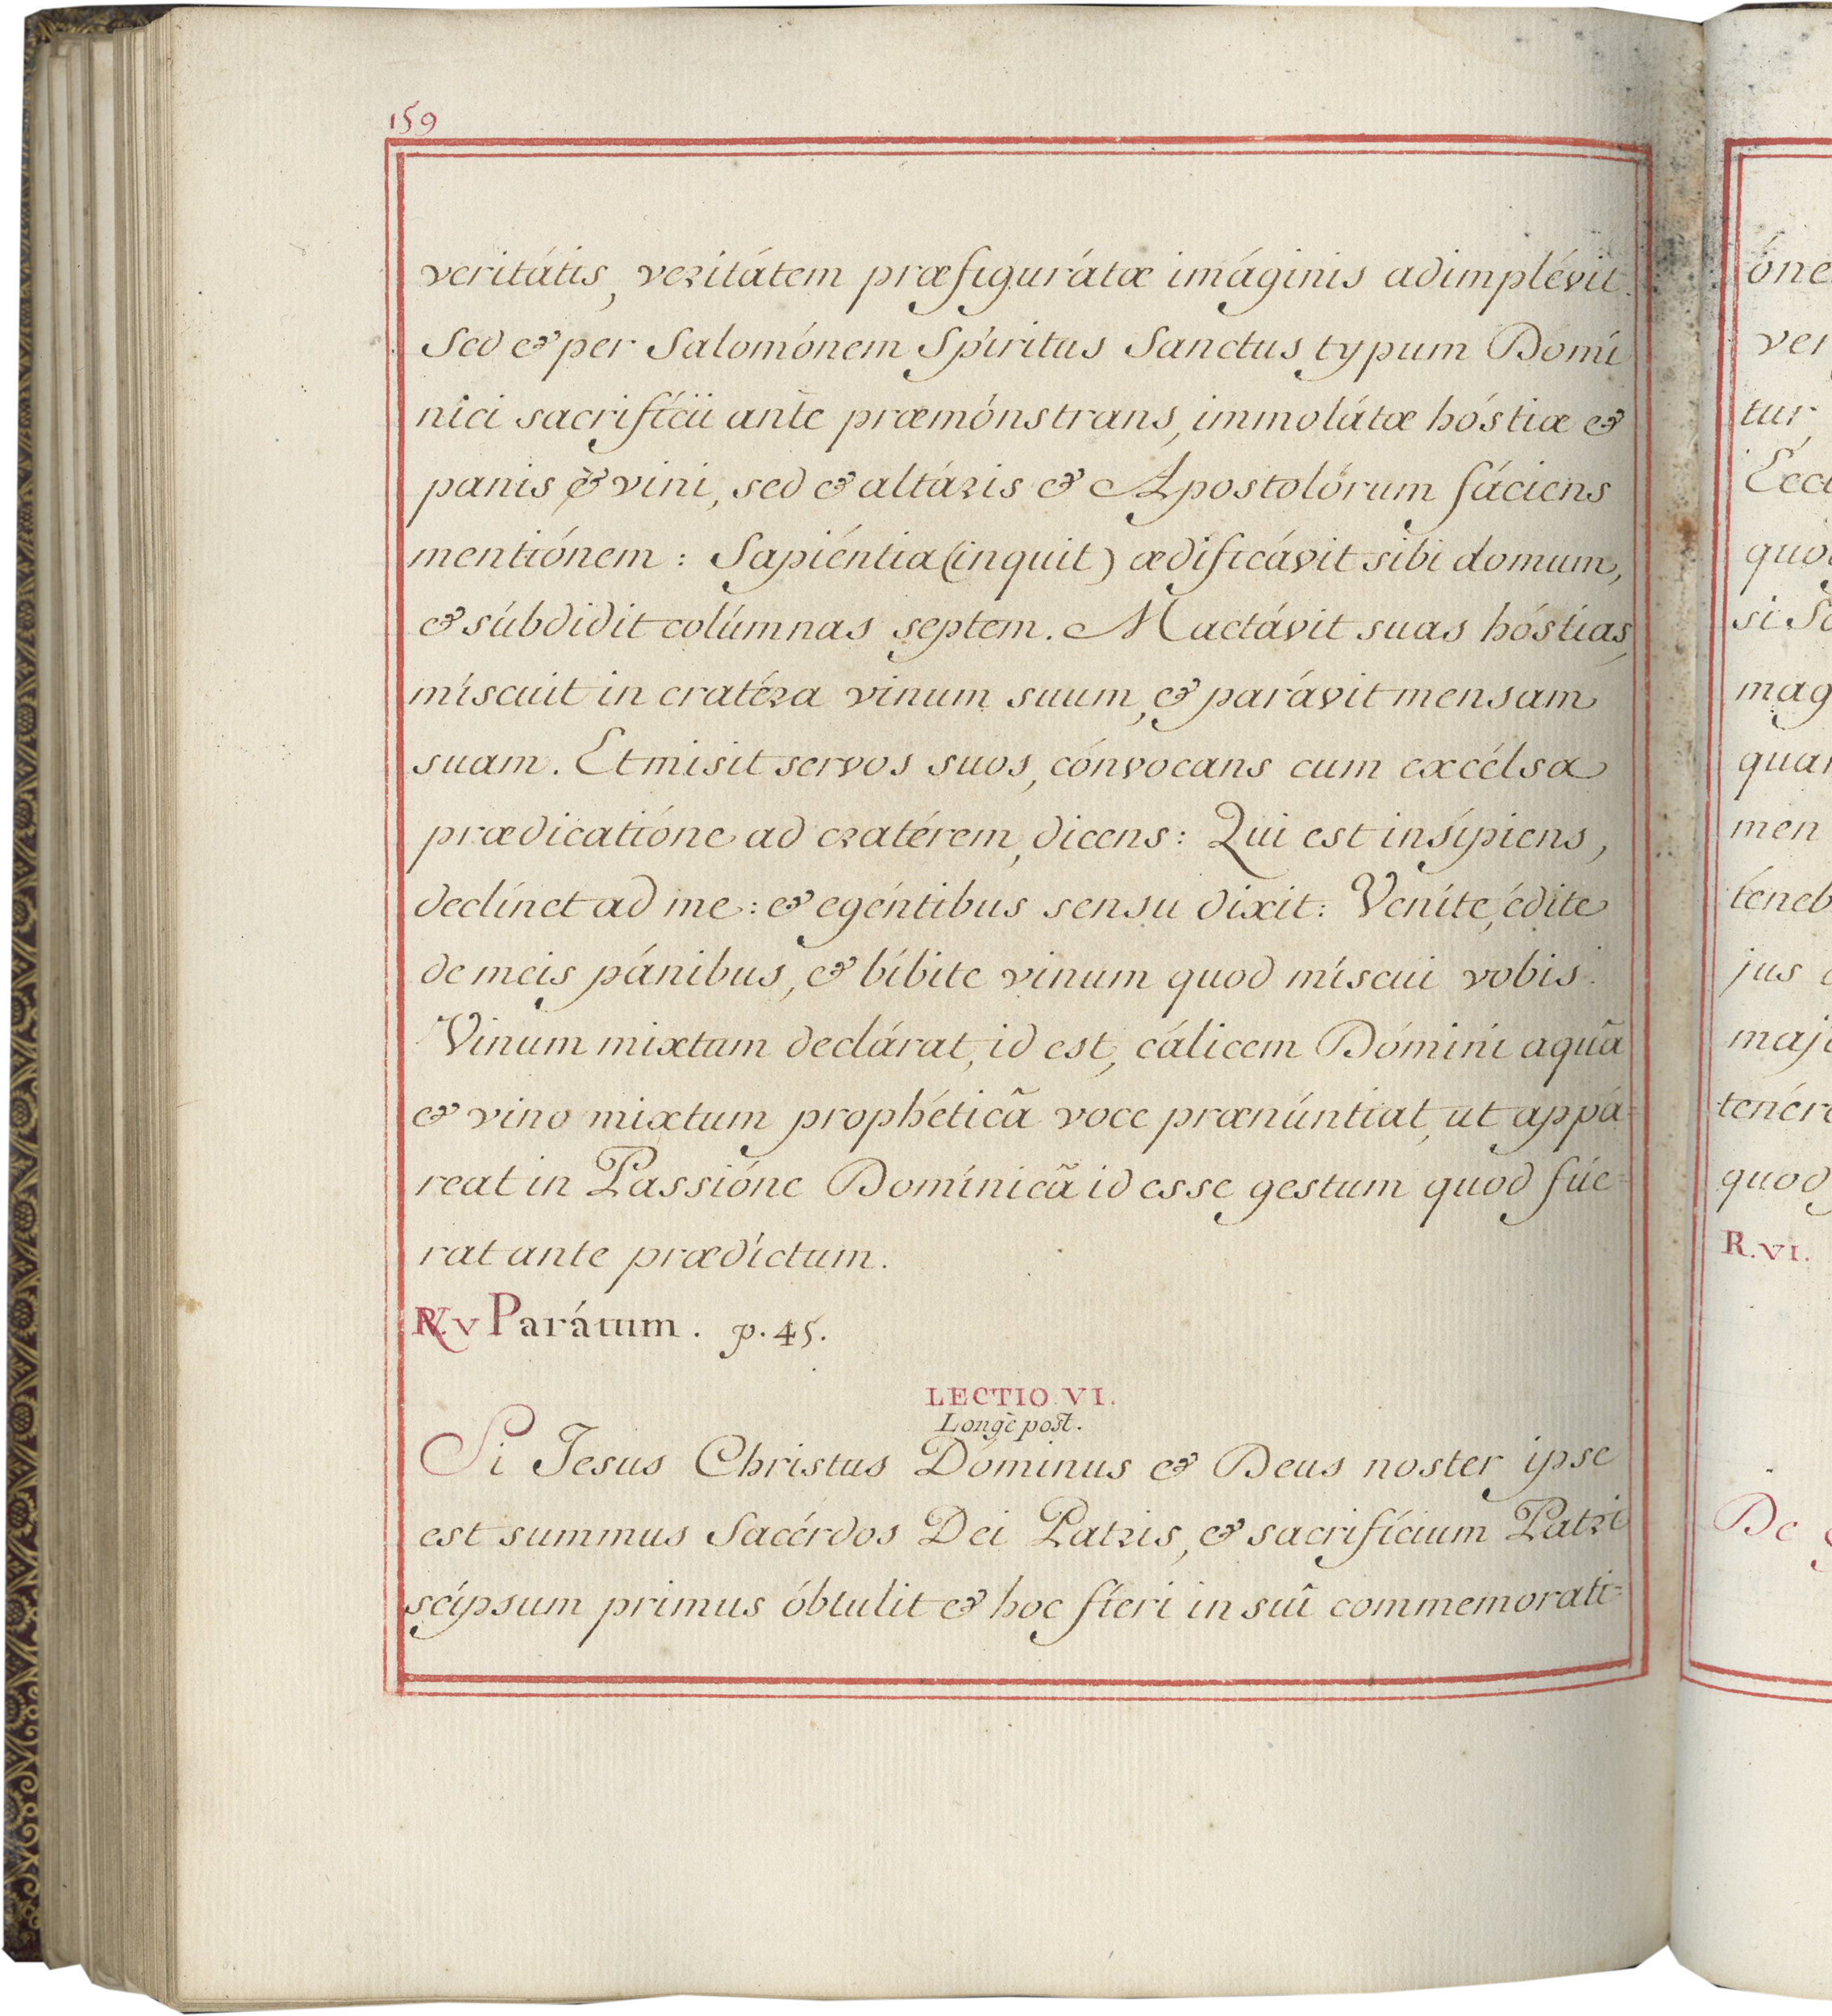 159
veritátis, veritátem præfigurátæ imáginis adimplévit.
Sed & per Salomónem Spíritus Sanctus typum Domí
nici sacrifícii antè præmónstrans, immolátæ hóstiæ &
panis & vini, sed & altáris & Apostolórum fáciens
mentiónem : Sapiéntia (inquit) ædificávit sibi domum,
& súbdidit colúmnas septem. Mactávit suas hóstias,
míscuit in cratéra vinum suum, & parávit mensam
suam. Et misit servos suos, cónvocans cum excélsa
prædicatióne ad cratérem, dicens : Qui est insípiens,
declínet ad me : & egéntibus sensu dixit : Veníte, édite
de meis pánibus, & bíbite vinum quod míscui vobis.
Vinum mixtum declárat, id est, cálicem Dómini aquã
& vino mixtum prophéticã voce prænúntiat, ut appá=
reat in Passióne Domínicã id esse gestum quod fúe=
rat ante prædíctum.
℟. V Parátum. p. 45.
LECTIO VI.
Longè post.
Si Jesus Christus Dóminus & Deus noster ipse
est summus Sacérdos Dei Patris, & sacrifícium Patri
seípsum primus óbtulit & hoc fíeri in suî commemorati=
óne
ver
tur
Eccl
quo
si Sa
mag
quar
men
téneb
jus
maj
tenére
quod
R. VI.
De